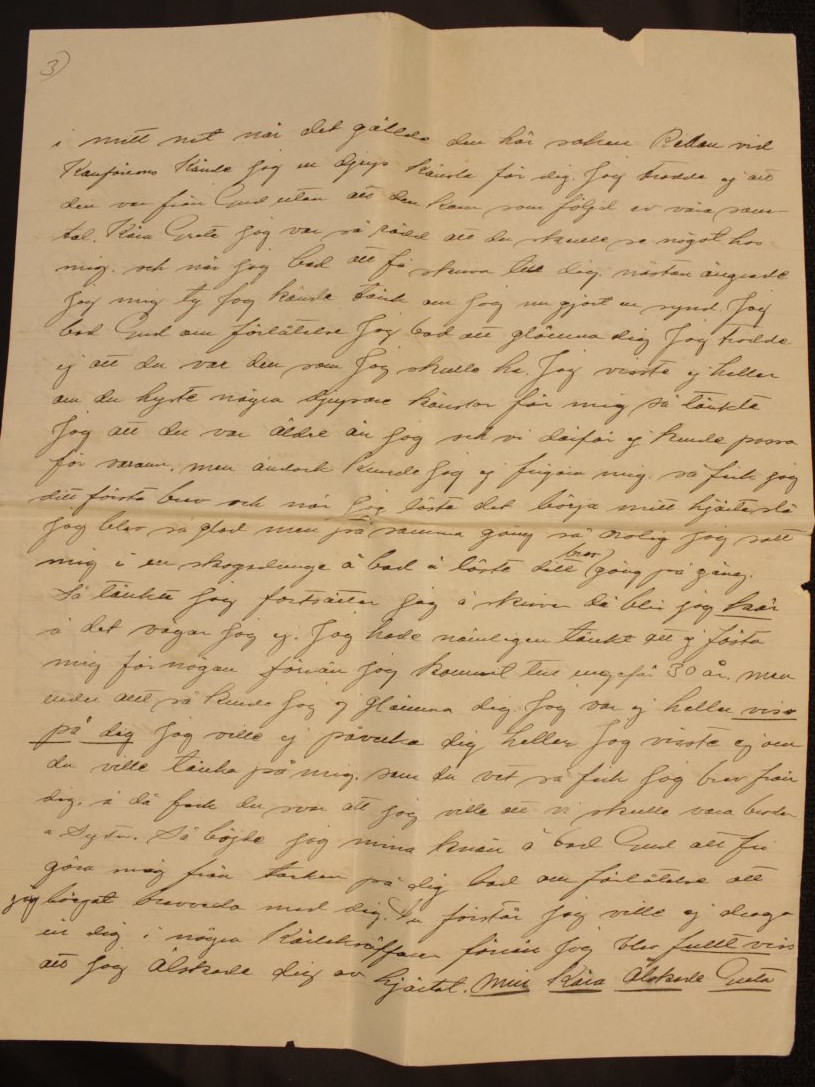 3)
i mitt  när det gällde den här saken Redan vid
 kände jag en djup känsla för dig. Jag trodde ej att
den var från Gud utan att den kom som följd av våra sam-
tal. Kära Greta jag var så rädd att du skulle se något hos
mig. och när jag bad att få skriva till dig. nästan ångrade
jag mig ty jag kände tänk om jag nu gjort en synd. Jag
bad Gud om förlåtelse Jag bad att glömma dig Jag trodde
ej att du var den som jag skulle ha. Jag visste ej heller
om du hyste några djupare känslor för mig så tänkte
jag att du var äldre än jag och vi därför ej kunde passa
för varann, men ändock kunde jag ej frigöra mig. så fick jag
ditt första brev och när jag läste det börja mitt hjärta slå
jag blev så glad men på samma gång så orolig jag satt
mig i en skogsdunge å bad å läste ditt brev gång på gång.
Så tänkte jag fortsätter jag å skriva då blir jag kär
å det vågar jag ej. Jag hade nämligen tänkt att ej fästa
mig för någon förrän jag kommit till ungefär 30 år. men
under allt så kunde jag ej glömma dig. Jag var ej heller viss
på dig jag ville ej påverka dig heller Jag visste ej om
du ville tänka på mig. som du vet så fick jag brev från
dig. å då fick du svar att jag ville att vi skulle vara broder
o Syster. Så böjde jag mina knän å bad Gud att fri
göra mig från tanken på dig bad om förlåtelse att
jag börjat brevväxla med dig. Du förstår jag ville ej draga
in dig i några kärleksaffärer förrän jag blev fullt viss
att jag älskade dig av hjärtat. Min Kära Älskade Greta